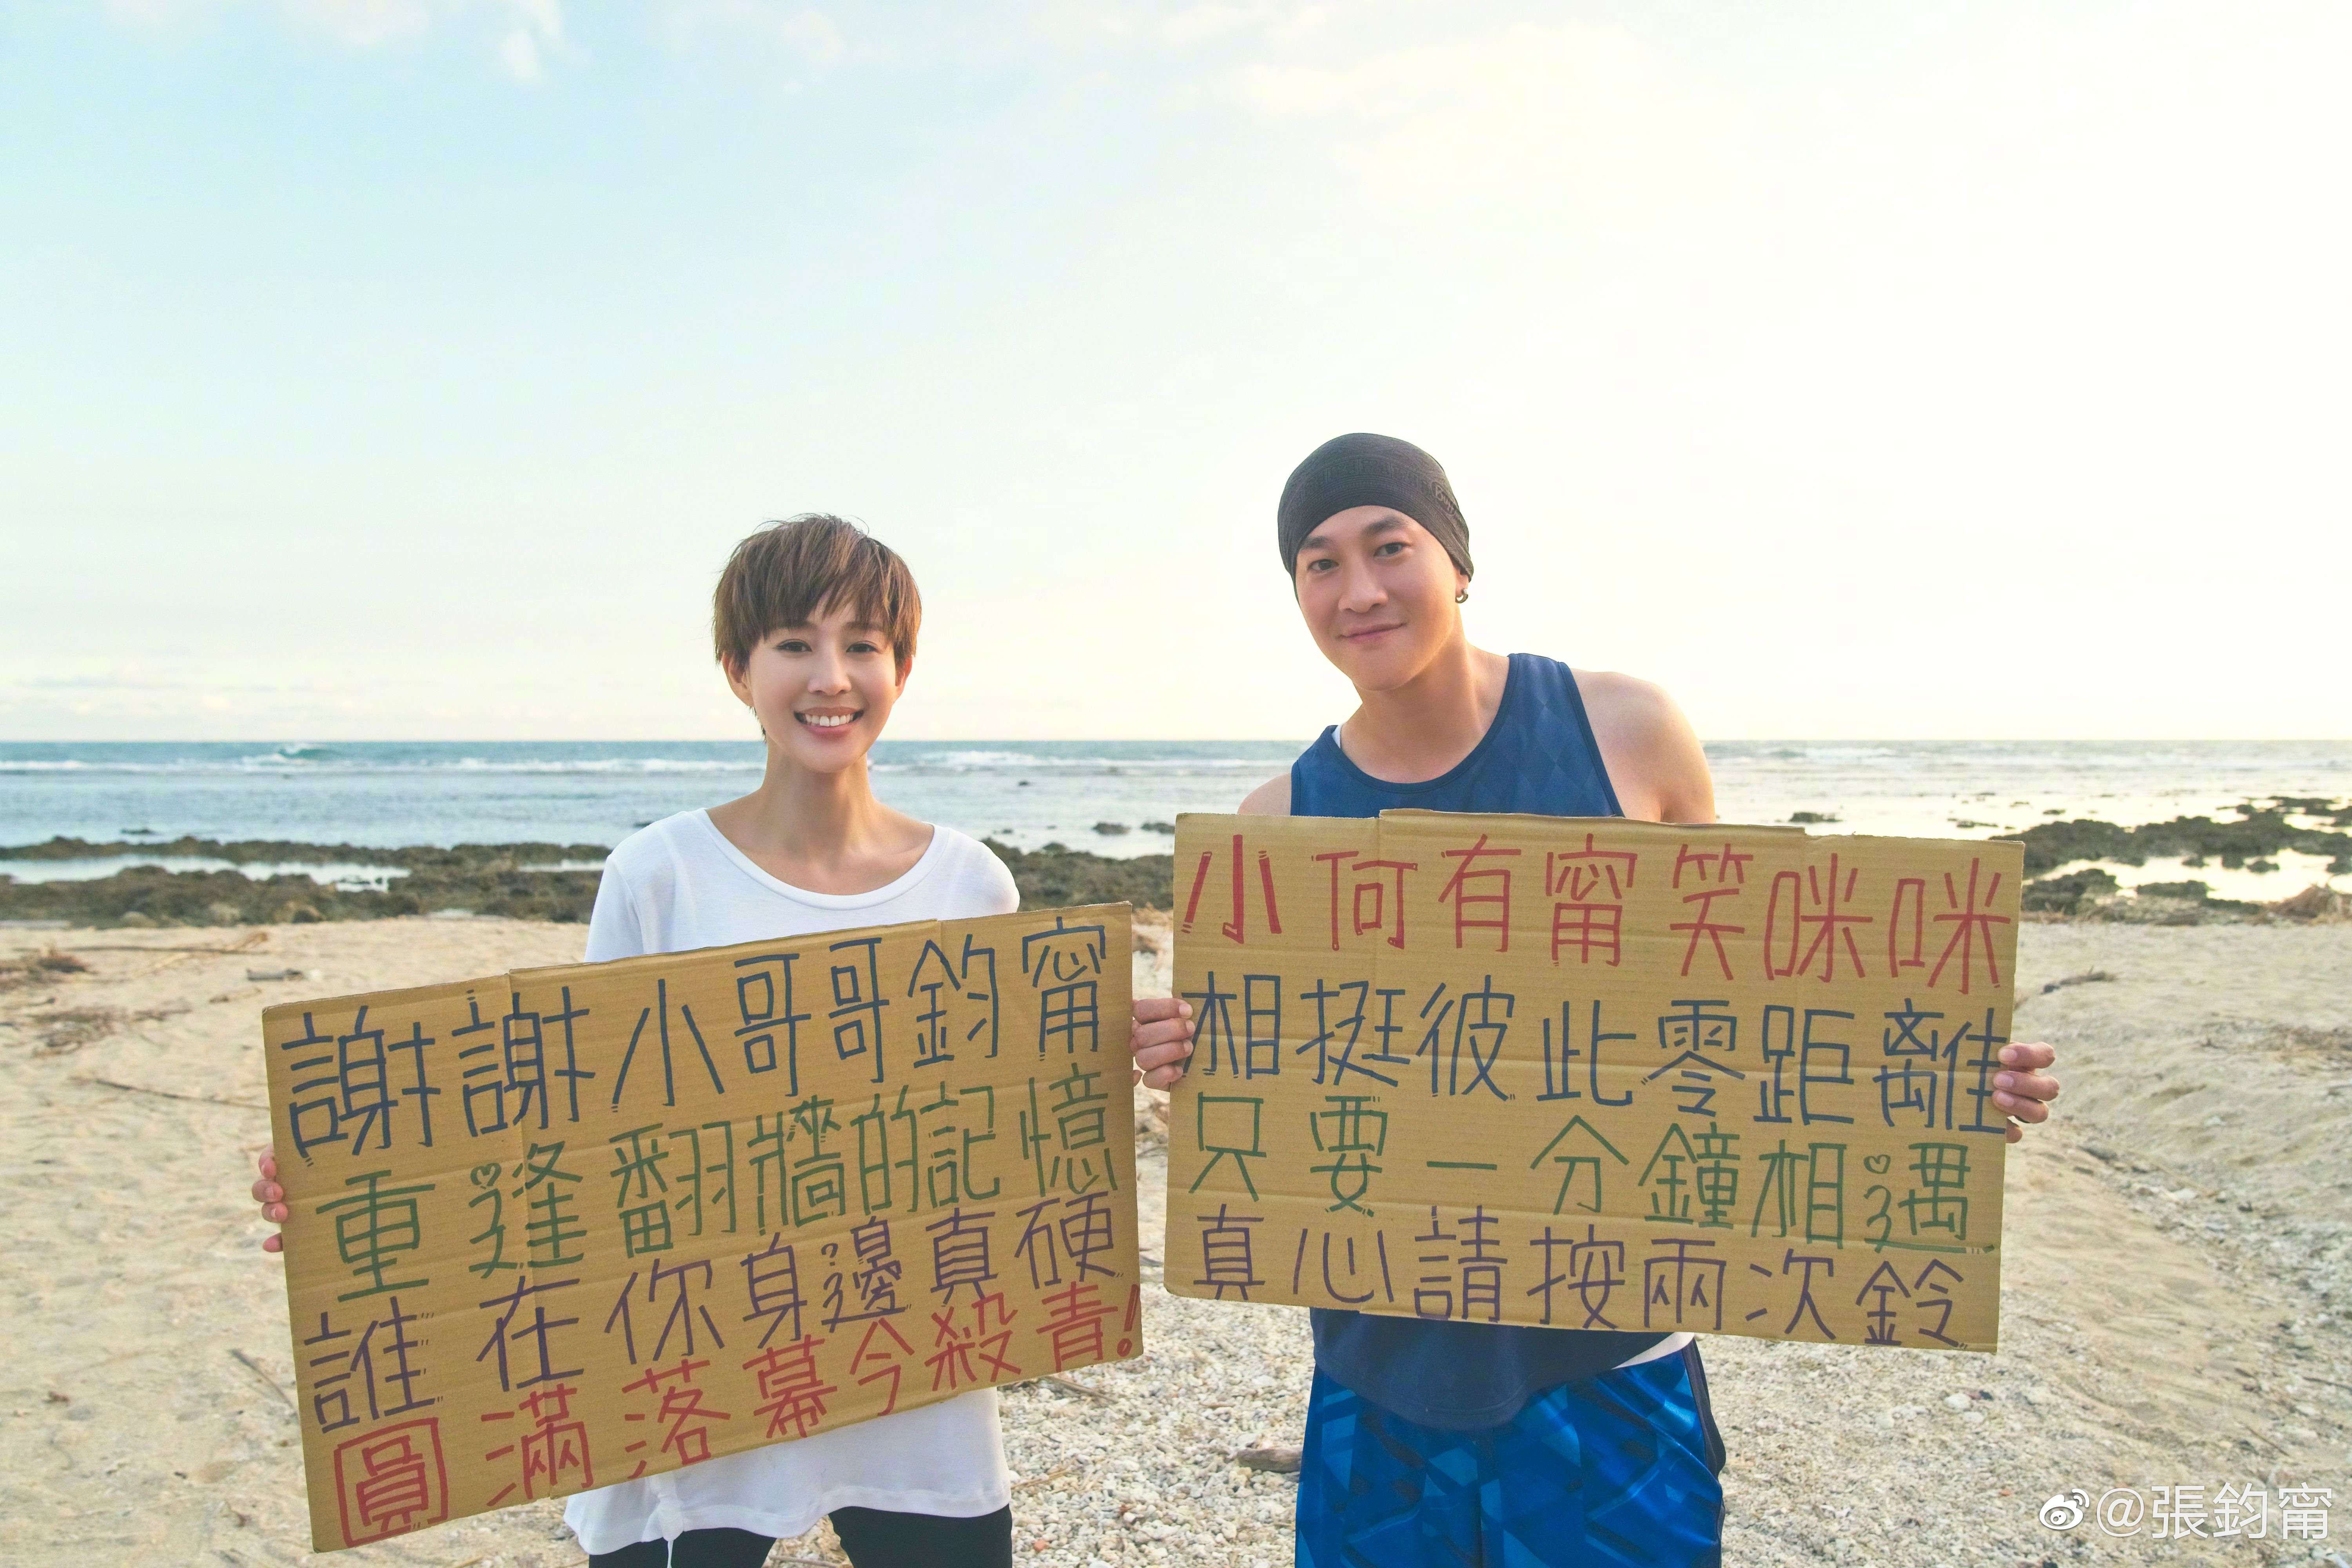 謝謝小哥哥鈞甯
重逢翻牆的記憶
誰在你身邊真硬
圓滿落幕今殺青!
小何有甯笑咪咪
相挺彼此零距離
只要一分鐘相遇
真心請按兩次鈴
@張鈞甯